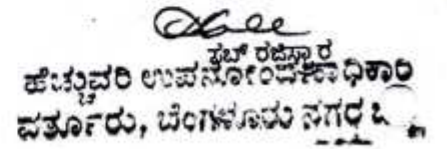 ಸಬ್ ರಜಿಸ್ಟ್ರಾರ
ಹೆಚ್ಚುವರಿ ಉಪನೋಂದಣಾಧಿಕಾರಿ
ವರ್ತೂರು, ಬೆಂಗಳೂರು ನಗರ